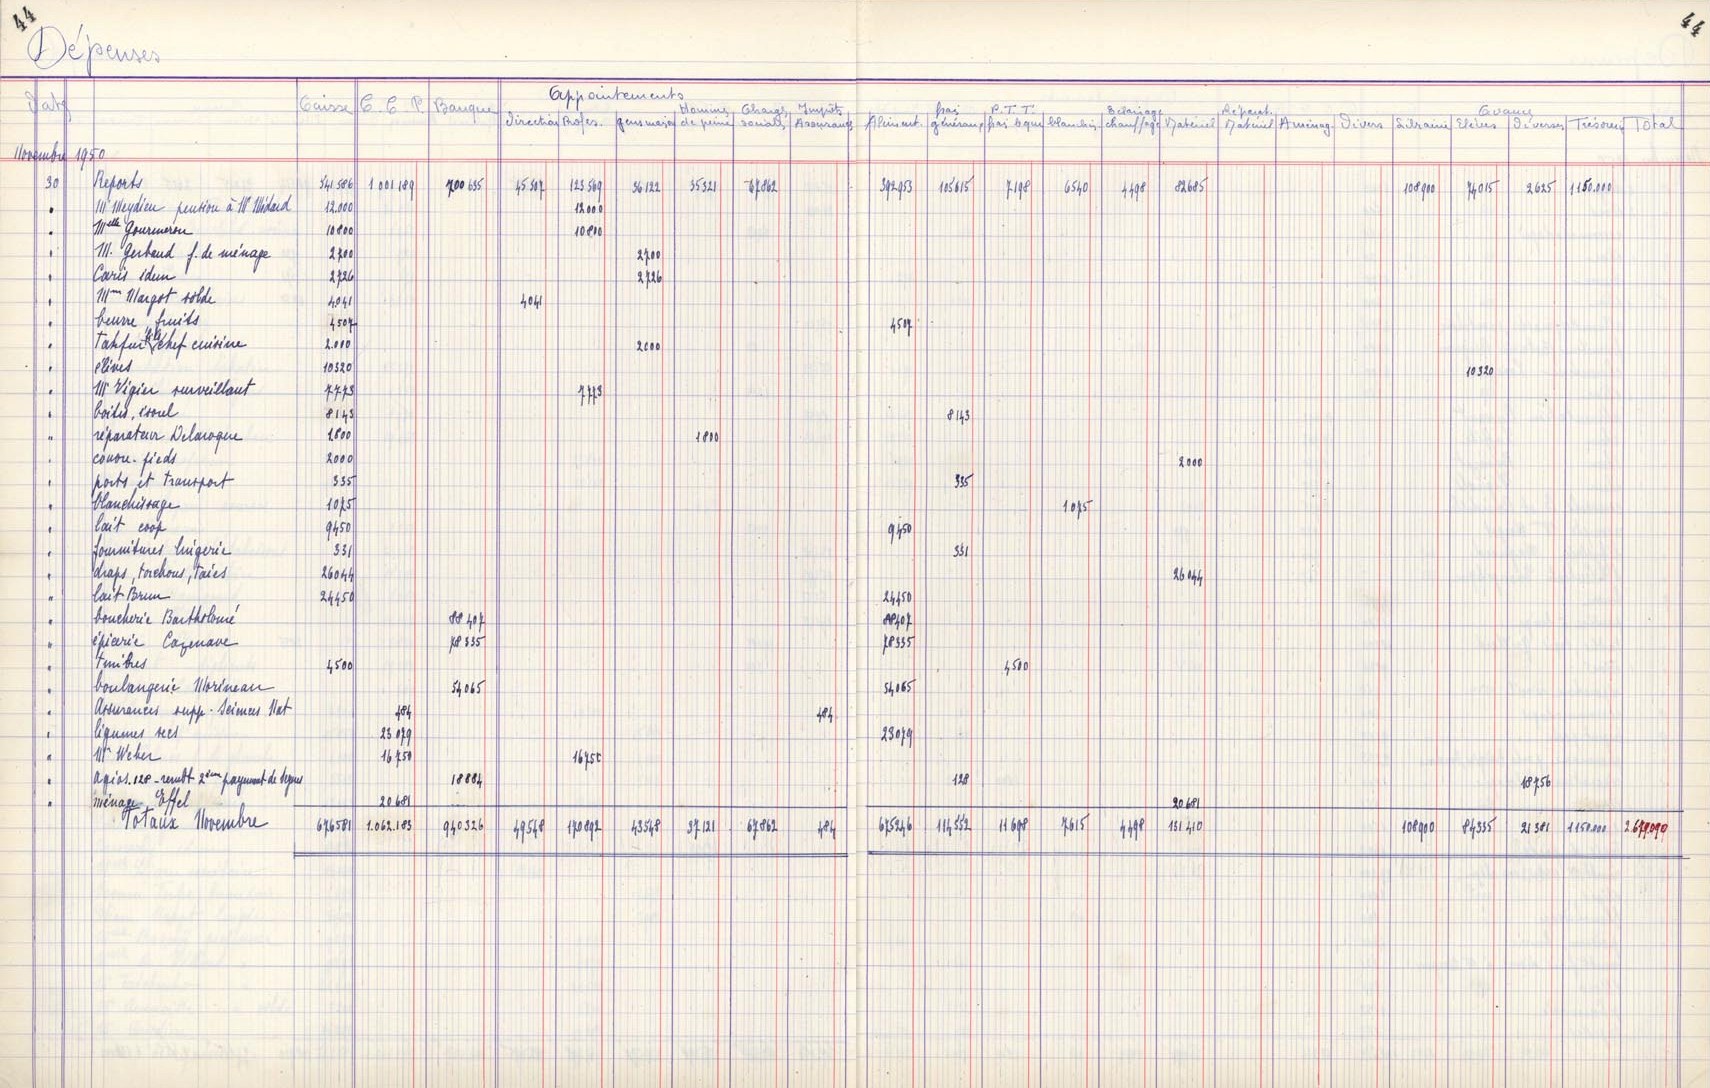 44 44
Dépenses
Date Caisse C. C. P. Banque Appointements Direction Profes. gens maison Homme de peine Charges sociales Impôts Assurances Aliment. frais généraux P.T.T. frais bque blanchis. Eclairage chauffage Matériel Répart. Matériel Aménag. Divers Librairie Avance Elèves Diverses Trésorerie Total
Novembre 1950
30 Reports 541.586 1 001 189 700 635 45 507 123 569 36 122 35321 67862 392 953 105615 7198 6540 4498 82685 108900 74015 2625 1 150.000
" Mr Meydieu pension à Mr Médard 12.000 12000
" Melle Gourmeron 10800 10800
" M. Gerbaud f. de ménage 2700 2700
" Caris idem 2726 2726
" Mme Margot solde 4041 4041
" beurre fruits 4507 4507
" chef cuisine 2.000 2000
" élèves 10320 10320
" Mr Vigier surveillant 7773 7773
" boites, isorel 8143 8143
" réparateur Delaroque 1800 1800
" couvre-pieds 2000 2000
" ports et transport 335 335
" blanchissage 1075 1075
" lait coop 9450 9450
" fournitures lingerie 331 331
" draps, torchons, taies 26044 26044
" lait Brun 24450 24450
" boucherie Bartholomé 88407 88407
" épicerie Cazenave 78335 78335
" timbres 4500 4500
" boulangerie Morineau 54065 54065
" Assurances supp. Sciences Nat 484 484
" légumes secs 23079 23079
" Mr Weber 16750 16750
" agios.128 - rembt 2ème payment de 18884 128 18756
" ménage Effel 20681 20681
Totaux Novembre 676581 1.062.183 940326 49548 170892 43548 37121 67862 484 675246 114552 11698 7615 4498 131410 108900 84335 21381 1150.000 2.679.090